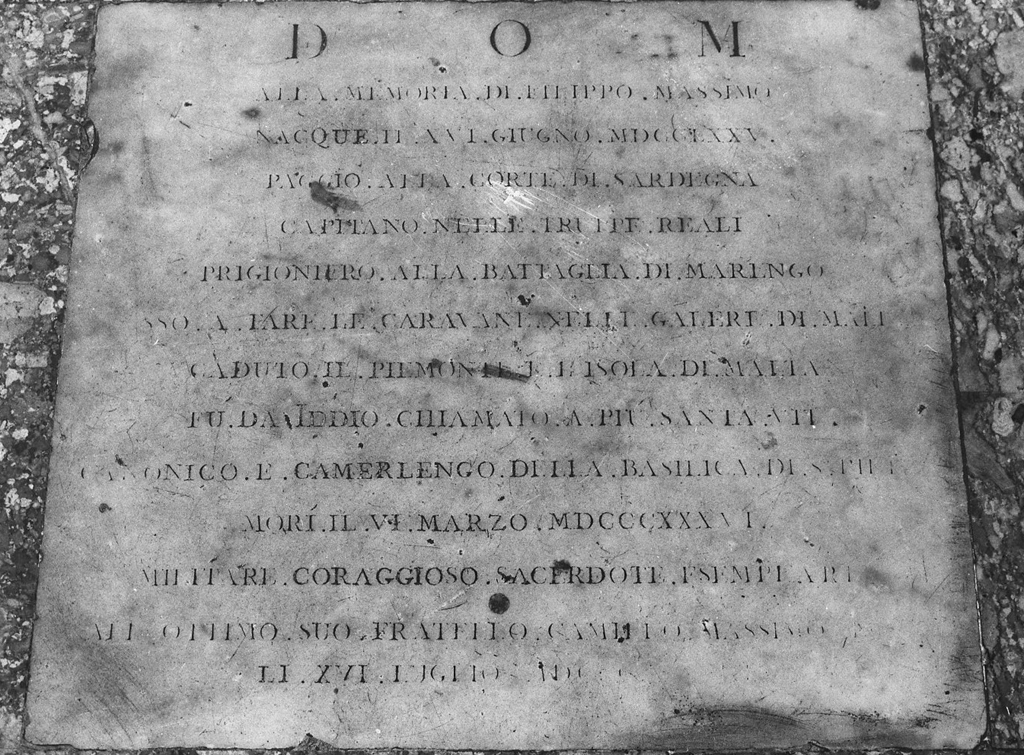 D O M
ALLA . MEMORIA . DI . FILIPPO . MASSIMO
NACQUE . IL XVI . GIUGNO . MDCCLXXV .
PAGGIO . ALLA . CORTE . DI . SARDEGNA
CAPITANO . NELLE . TRUPPE . REALI
PRIGIONIERO . ALLA . BATTAGLIA . DI . MARENGO
A . FARE . LE . CARAVANE . NELLE . GALERE . DI .
CADUTO . IL . PIEMONTE . E . L'ISOLA . DI . MALTA
FU . DA . IDDIO . CHIAMATO . A . PIÚ . SANTA .
CANONICO . E . CAMERLENGO . DELLA . BASILICA . DI . S .
MORÍ . IL . VI . MARZO . MDCCCXXXVI .
MILITARE . CORAGGIOSO . SACERDOTE . ESEMPLARE
OTTIMO . SUO . FRATELLO . CAMILLO . MASSIMO
LI . XVI . LUGLIO